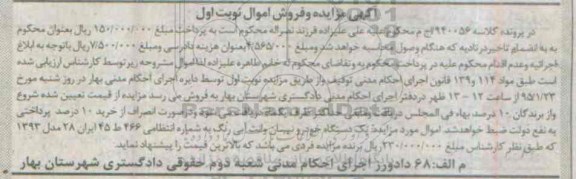 آگهی مزایده وفروش اموال نوبت اول
در پرونده کلاسه ۹۴۰۰۵۶ اج م محکوم علیه علی علیزاده فرزند نصراله محکوم است به پرداخت مبلغ ۱۵۰/۰۰۰/۰۰۰ ریال بعنوان محکوم
به به انضمام تاخیر در تادیه که هنگام وصول محاسبه خواهد شد ومبلغ ۴/۵۶۵/۰۰۰ بعنوان هزینه دادرسی ومبلغ ۷/۵۰۰/۰۰۰ ریال باتوجه به ابلاغ
اجرائیه وعدم اقدام محکوم علیه در پرداخت محکوم به وتقاضای محکوم له خانم طاهره علیزاده لذا اموال مشروحه زیر توسط کارشناس ارزیابی شده
است طبق مواد ۱۱۴ و ۱۳۹ قانون اجرای احکام مدنی توقیف واز طریق مزایده نوبت اول توسط دایره اجرای احکام مدنی بهار در روز شنبه مورخ
۹۵/۱/۲۳ از ساعت ۱۲ - ۱۳ ظهر در دفتر اجرای احکام مدنی دادگستری شهرستان بهار به فروش می رسد مزایده از قیمت تعیین شده شروع
واز برندگان ۱۰ درصد بهاء فی المجلس دریافت ظرف یکماه دریافت می شود ودر صورت انصراف از خرید ۱۰ درصد پرداختی
به نفع دولت ضبط خواهد شد. اموال مورد مزایده: یک دستگاه خودرو نیسان وانت آبی رنگ به شماره انتظامی ۴۶۶ ط ۴۵ ایران ۲۸ مدل ۱۳۹۳
که طبق نظر کارشناس مبلغ ۲۳۰/۰۰۰/۰۰۰ ریال برنده مزایده فردی می باشد که بالاترین قیمت را پیشنهاد نماید.
م الف: ۶۸ دادورز اجرای احکام مدنی شعبه دوم حقوقی دادگستری شهرستان بهار